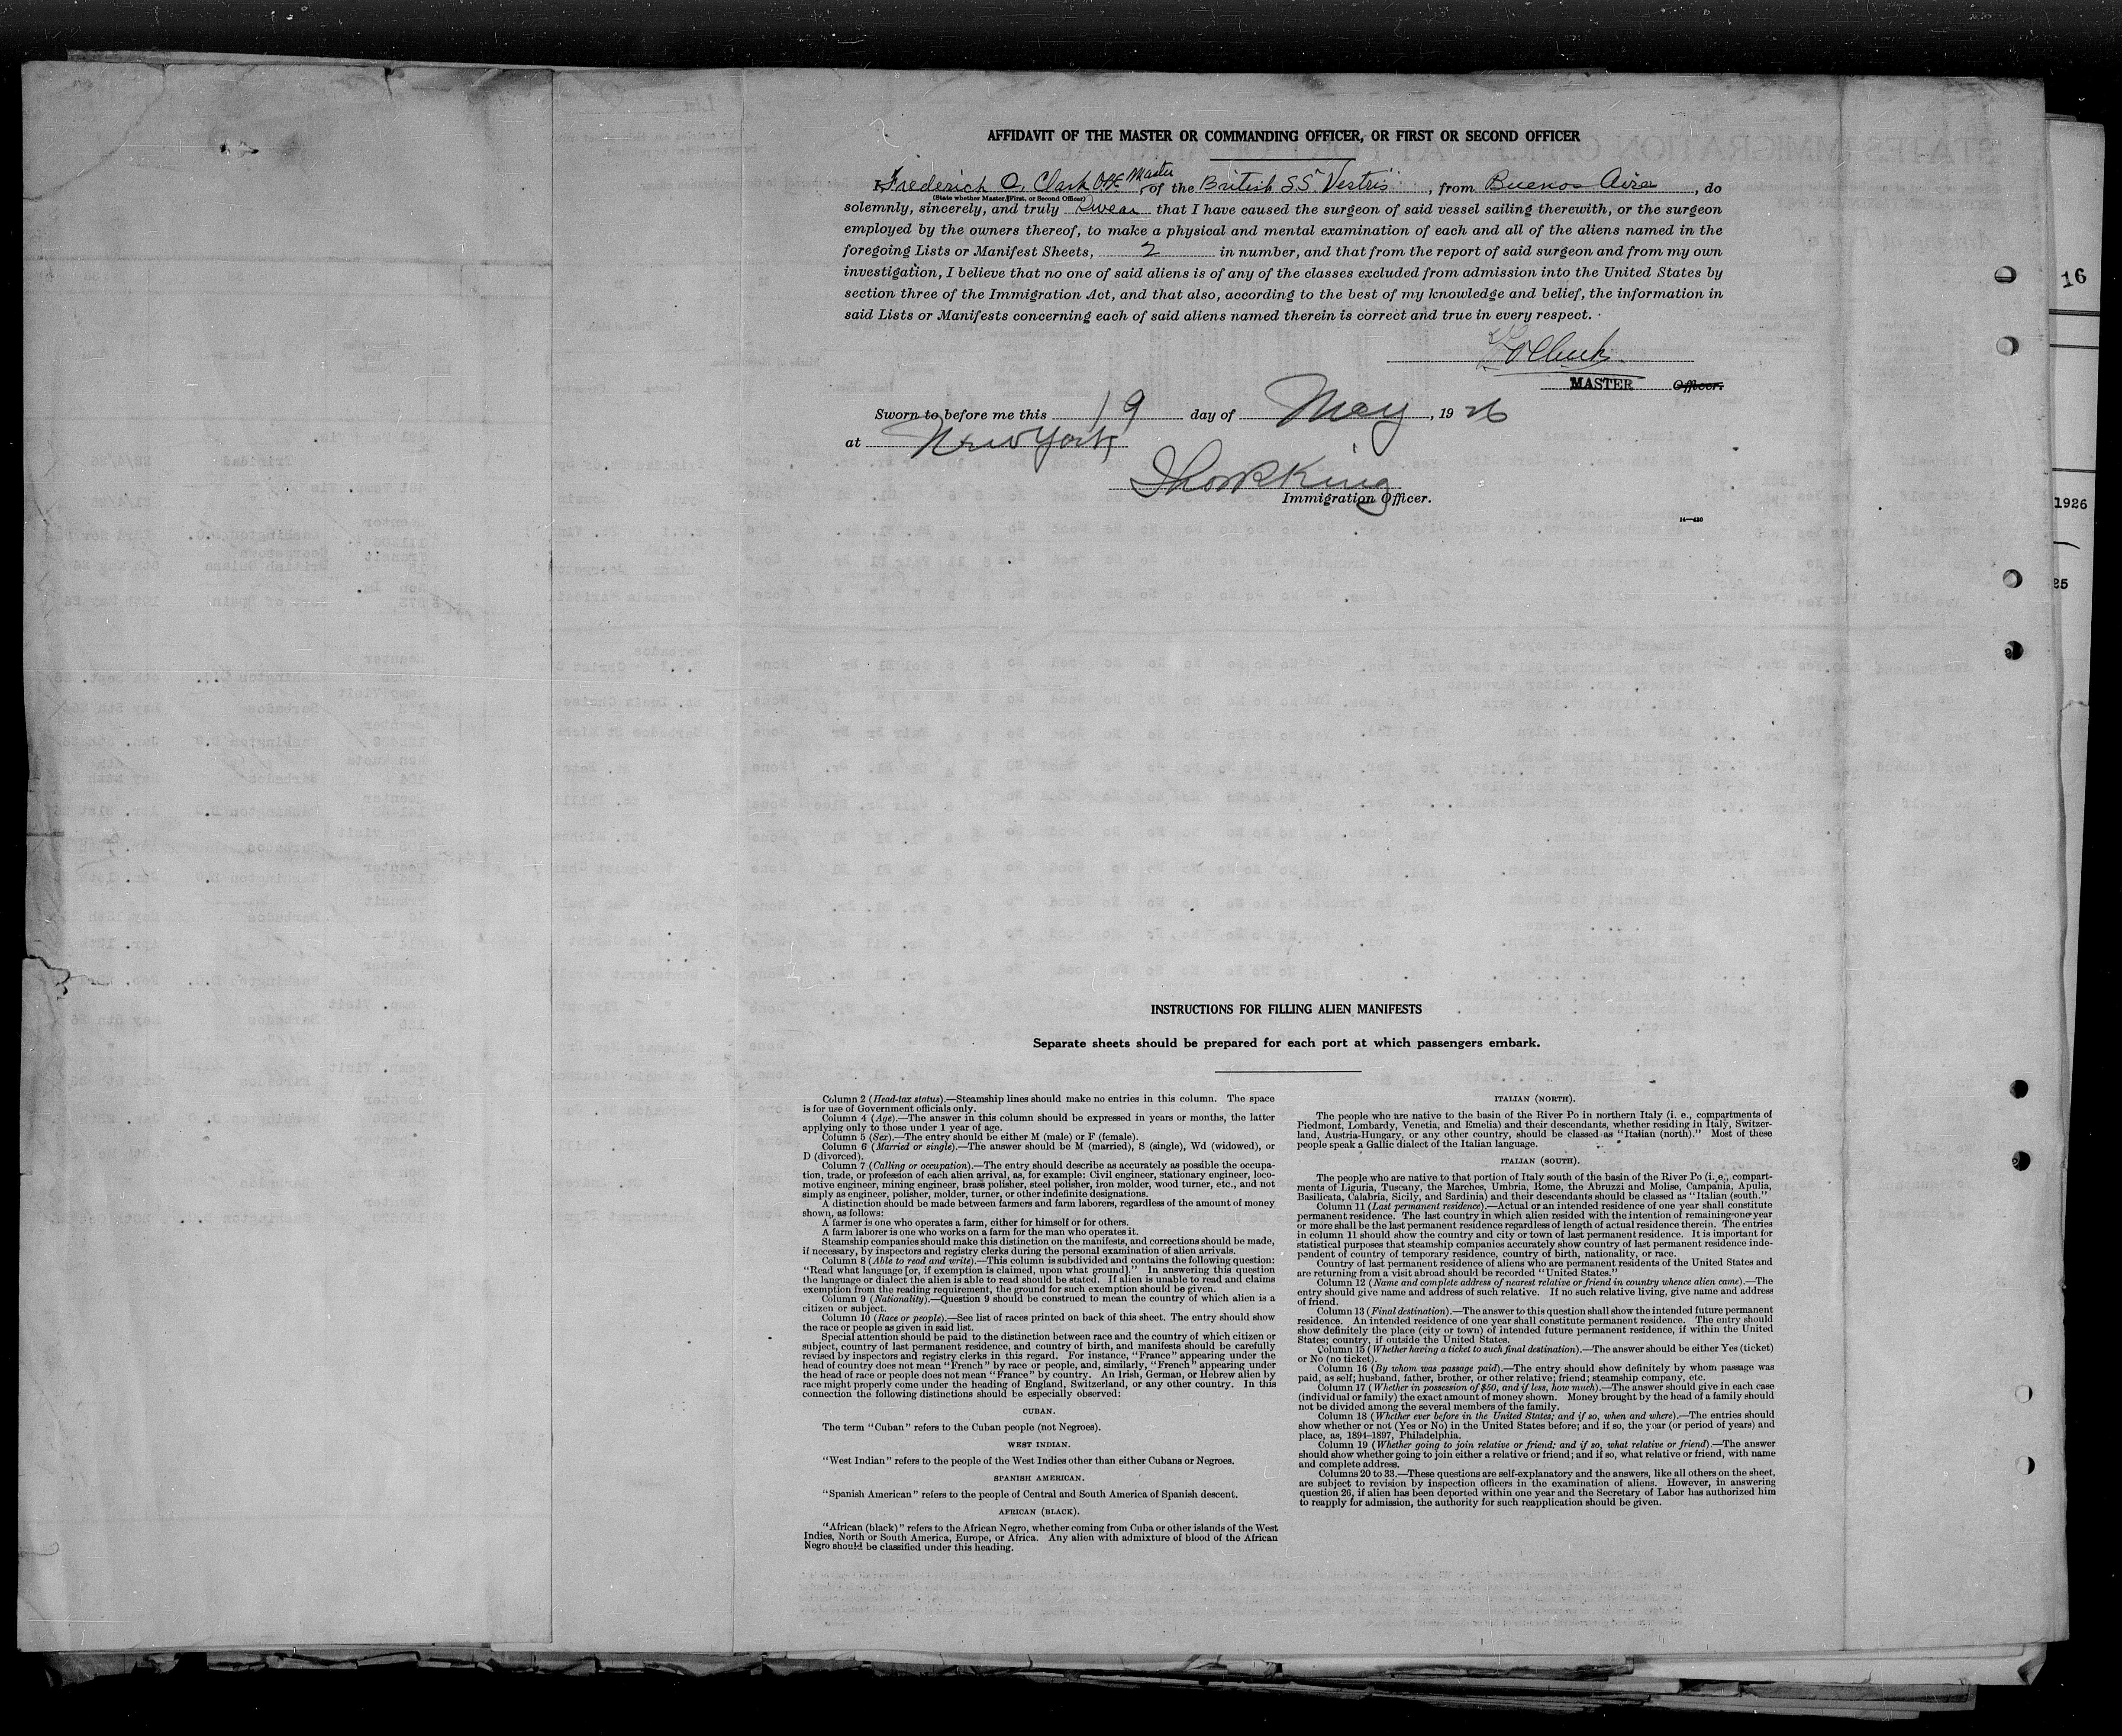 AFFIDAVIT OF THE MASTER OR COMMANDING OFFICER, OR FIRST OR SECOND OFFICER
I, Frederich O. Clark Master of the British S.S. Vestris, from Buenos Aires, do
(State whether Master, First, or Second Officer)
solemnly, sincerely, and truly Swear that I have caused the surgeon of said vessel sailing therewith, or the surgeon
employed by the owners thereof, to make a physical and mental examination of each and all of the aliens named in the
foregoing Lists or Manifest Sheets, 2 in number, and that from the report of said surgeon and from my own
investigation, I believe that no one of said aliens is of any of the classes excluded from admission into the United States by
section three of the Immigration Act, and that also, according to the best of my knowledge and belief, the information in
said Lists or Manifests concerning each of said aliens named therein is correct and true in every respect.
MASTER Officer.
Sworn to before me this 19 day of May, 1926
at New York
Immigration Officer.
14—430
16
1926
25
INSTRUCTIONS FOR FILLING ALIEN MANIFESTS
Separate sheets should be prepared for each port at which passengers embark.
Column 2 (Head-tax status).—Steamship lines should make no entries in this column. The space
is for use of Government officials only.
Column 4 (Age).—The answer in this column should be expressed in years or months, the latter
applying only to those under 1 year of age.
Column 5 (Sex).—The entry should be either M (male) or F (female).
Column 6 (Married or single).—The answer should be M (married), S (single), Wd (widowed), or
D (divorced).
Column 7 (Calling or occupation).—The entry should describe as accurately as possible the occupa-
tion, trade, or profession of each alien arrival, as, for example: Civil engineer, stationary engineer, loco-
motive engineer, mining engineer, brass polisher, steel polisher, iron molder, wood turner, etc., and not
simply as engineer, polisher, molder, turner, or other indefinite designations.
A distinction should be made between farmers and farm laborers, regardless of the amount of money
shown, as follows:
A farmer is one who operates a farm, either for himself or for others.
A farm laborer is one who works on a farm for the man who operates it.
Steamship companies should make this distinction on the manifests, and corrections should be made,
if necessary, by inspectors and registry clerks during the personal examination of alien arrivals.
Column 8 (Able to read and write).—This column is subdivided and contains the following question:
"Read what language [or, if exemption is claimed, upon what ground]." In answering this question
the language or dialect the alien is able to read should be stated. If alien is unable to read and claims
exemption from the reading requirement, the ground for such exemption should be given.
Column 9 (Nationality).—Question 9 should be construed to mean the country of which alien is a
citizen or subject.
Column 10 (Race or people).—See list of races printed on back of this sheet. The entry should show
the race or people as given in said list.
Special attention should be paid to the distinction between race and the country of which citizen or
subject, country of last permanent residence, and country of birth, and manifests should be carefully
revised by inspectors and registry clerks in this regard. For instance, "France" appearing under the
head of country does not mean "French" by race or people, and, similarly, "French" appearing under
the head of race or people does not mean "France" by country. An Irish, German, or Hebrew alien by
race might properly come under the heading of England, Switzerland, or any other country. In this
connection the following distinctions should be especially observed:
CUBAN.
The term "Cuban" refers to the Cuban people (not Negroes).
WEST INDIAN.
"West Indian" refers to the people of the West Indies other than either Cubans or Negroes.
SPANISH AMERICAN.
"Spanish American" refers to the people of Central and South America of Spanish descent.
AFRICAN (BLACK).
"African (black)" refers to the African Negro, whether coming from Cuba or other islands of the West
Indies, North or South America, Europe, or Africa. Any alien with admixture of blood of the African
Negro should be classified under this heading.
ITALIAN (NORTH).
The people who are native to the basin of the River Po in northern Italy (i. e., compartments of
Piedmont, Lombardy, Venetia, and Emelia) and their descendants, whether residing in Italy, Switzer-
land, Austria-Hungary, or any other country, should be classed as "Italian (north)." Most of these
people speak a Gallic dialect of the Italian language.
ITALIAN (SOUTH).
The people who are native to that portion of Italy south of the basin of the River Po (i. e., compart-
ments of Liguria, Tuscany, the Marches, Umbria, Rome, the Abruzzi and Molise, Campania, Apulia,
Basilicata, Calabria, Sicily, and Sardinia) and their descendants should be classed as "Italian (south."
Column 11 (Last permanent residence).—Actual or an intended residence of one year shall constitute
permanent residence. The last country in which alien resided with the intention of remaining one year
or more shall be the last permanent residence regardless of length of actual residence therein. The entries
in column 11 should show the country and city or town of last permanent residence. It is important for
statistical purposes that steamship companies accurately show country of last permanent residence inde-
pendent of country of temporary residence, country of birth, nationality, or race.
Country of last permanent residence of aliens who are permanent residents of the United States and
are returning from a visit abroad should be recorded "United States."
Column 12 (Name and complete address of nearest relative or friend in country whence alien came).—The
entry should give name and address of such relative. If no such relative living, give name and address
of friend.
Column 13 (Final destination).—The answer to this question shall show the intended future permanent
residence. An intended residence of one year shall constitute permanent residence. The entry should
show definitely the place (city or town) of intended future permanent residence, if within the United
States; country, if outside the United States.
Column 15 (Whether having a ticket to such final destination).—The answer should be either Yes (ticket)
or No (no ticket).
Column 16 (By whom was passage paid).—The entry should show definitely by whom passage was
paid, as self; husband, father, brother, or other relative; friend; steamship company, etc.
Column 17 (Whether in possession of $50, and if less, how much).—The answer should give in each case
(individual or family) the exact amount of money shown. Money brought by the head of a family should
not be divided among the several members of the family.
Column 18 (Whether ever before in the United States; and if so, when and where).—The entries should
show whether or not (Yes or No) in the United States before; and if so, the year (or period of years) and
place, as, 1894-1897, Philadelphia.
Column 19 (Whether going to join relative or friend; and if so, what relative or friend).—The answer
should show whether going to join either a relative or friend; and if so, what relative or friend, with name
and complete address.
Columns 20 to 33.—These questions are self-explanatory and the answers, like all others on the sheet,
are subject to revision by inspection officers in the examination of aliens. However, in answering
question 26, if alien has been deported within one year and the Secretary of Labor has authorized him
to reapply for admission, the authority for such reapplication should be given.